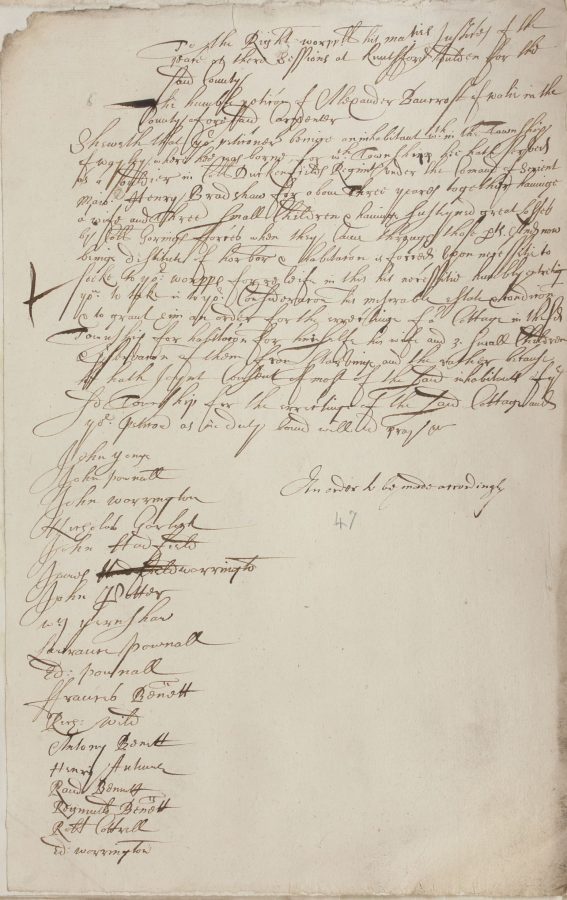 To the Right worpll his maties Justices of the
peace att there Sessions at Knuttsford houlden for the
said County
The humble peticon of Alexander Bancroft of in the
County aforesaid Carpenter
Sheweth that yor petitioner beinge an inhabitant wth in the Townshipp
of where hee was borne for wch Towneshipp hee hath served
as a Souldier in Coll Duckenfields Regimt under the Comand of Serient
Maior Henry Bradshaw for about Three yeares together haveinge
a wife and three small Children & haveinge susteyned great losses
by forces when they came through those pts And now
beinge destitute of harbor & habitacon is forced upon necessitie to
seeke to yor worpps for releife in this his necessitie humbly
yor to take in to yor Consideracon his miserable estate
& to grant him an order for the erectinge of a Cottage in the sd
Township for habitacon for himselfe his wife and 3 small Children
& preservacon of them from Starvinge and the rather because
hee hath Consent of most of the said inhabitants of ye
sd Township for the erectinge of the said Cottage and
yor petr as in duty bound will pray &c
John
John Pownall
John worrington
An order to be made accordingly
47
Nicholas
John Hadfield
worrington
John Potter
Pownall
Ed: Pownall
ffrancis Benett
Rich: wild
Antony Benett
Henry
Rand Benett
Reginald Benett
Robt Cottrell
Ed: worrington